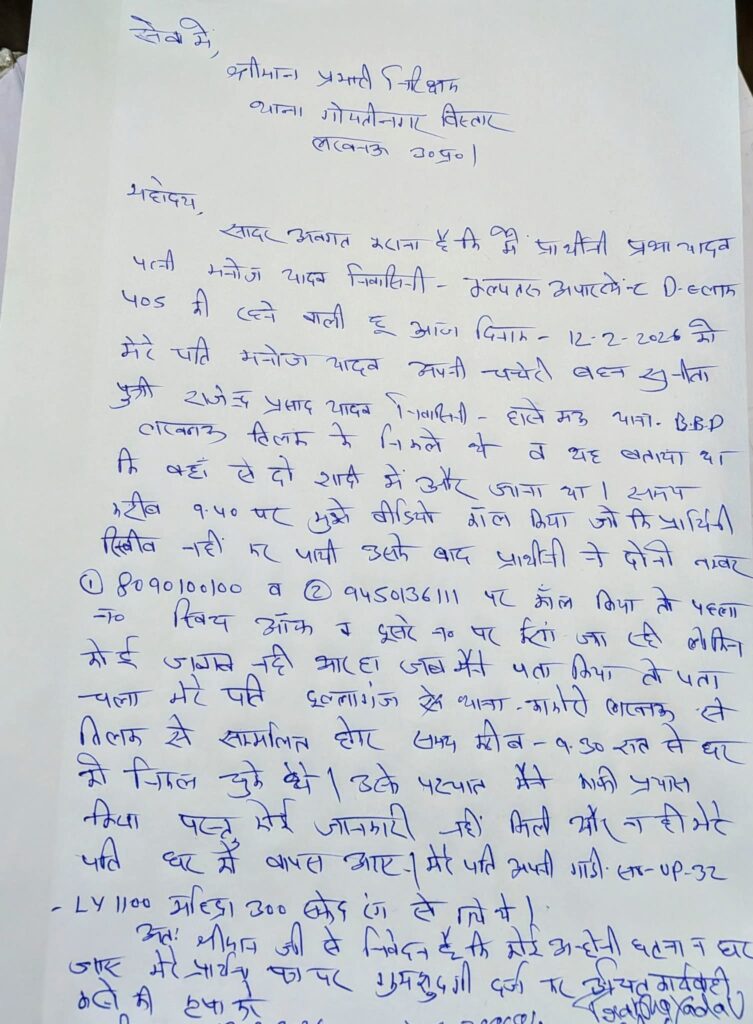 सेवा में,
श्रीमान प्रभारी निरीक्षक
थाना गोमतीनगर विस्तार
लखनऊ उ०प्र०।
महोदय,
सादर अवगत कराना है कि मैं प्रार्थीनी प्रभा यादव
पत्नी मनोज यादव निवासिनी - कल्पतरु अपार्टमेन्ट D-ब्लाक
405 की रहने वाली हू आज दिनांक - 12-2-2026 को
मेरे पति मनोज यादव अपनी चचेरी बहन सुनीता
पुत्री राजेन्द्र प्रसाद यादव निवासिनी - थाना. B.B.D
लखनऊ तिलक के निकले थे व यह बताया था
कि वहाँ से दो शादी में और जाना था। समय
करीब 9.40 पर मुझे वीडियो कॉल किया जो कि प्रार्थिनी
रिसीव नहीं कर पायी उसके बाद प्रार्थीनी ने दोनो नम्बर
① 8090100100 व ② 9450136111 पर कॉल किया तो पहला
न० स्विच ऑफ व दूसरे न० पर रिंग जा रही लेकिन
कोई जवाब नही आ रहा जब मैने पता किया तो पता
चला मेरे पति थाना - काकोरी लखनऊ से
तिलक से सम्मलित होकर समय करीब - 9.30 रात से घर
को निकल चुके थे। उसके पश्चात मैने काफी प्रयास
किया परन्तु कोई जानकारी नहीं मिली और न ही मेरे
पति घर में वापस आए। मेरे पति अपनी गाडी UP-32
- LY 1100 महिंद्रा 300 सफेद रंग से गये थे।
अतः श्रीमान जी से निवेदन है कि कोई अनहोनी घटना न घट
जाए मेरे प्रार्थना पत्र पर गुमशुदगी दर्ज कर उचित कार्यवाही
करने की कृपा करे Prabha Yadav